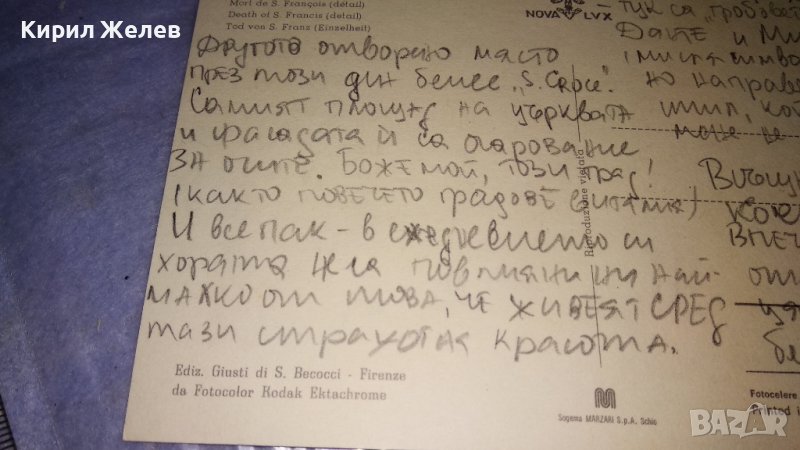 Кирил Желев
Mort de S. François (détail)
Death of S. Francis (detail)
Tod von S. Franz (Einzelheit)
NOVA LVX
Другото отворено място
през този ден беше „S. Croce".
Самият площад на църквата
и фасадата ѝ са очарование
за очите. Боже мой, този град!
(както повечето градове в Италия)
И все пак - в ежедневието си
хората не са повлияни ни най-
малко от това, че живеят сред
тази страхотна красота.
тук са „гробовете
Данте и Ми
но направе
може не
Впеч
от
бе
Riproduzione vietata
Ediz. Giusti di S. Becocci - Firenze
da Fotocolor Kodak Ektachrome
Sogema MARZARI S.p.A. Schio
Fotocelere
Printed i
BAZAR